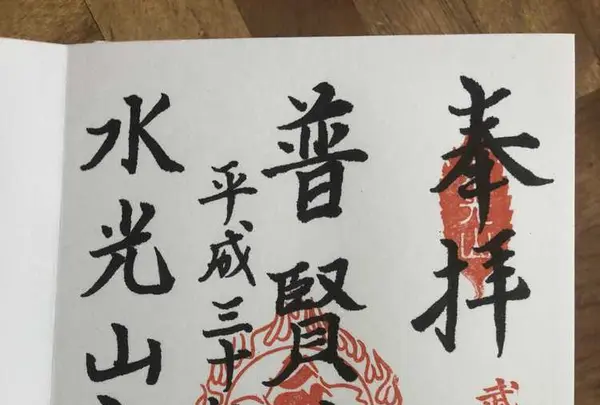 奉拝
普賢
平成三十
水光山